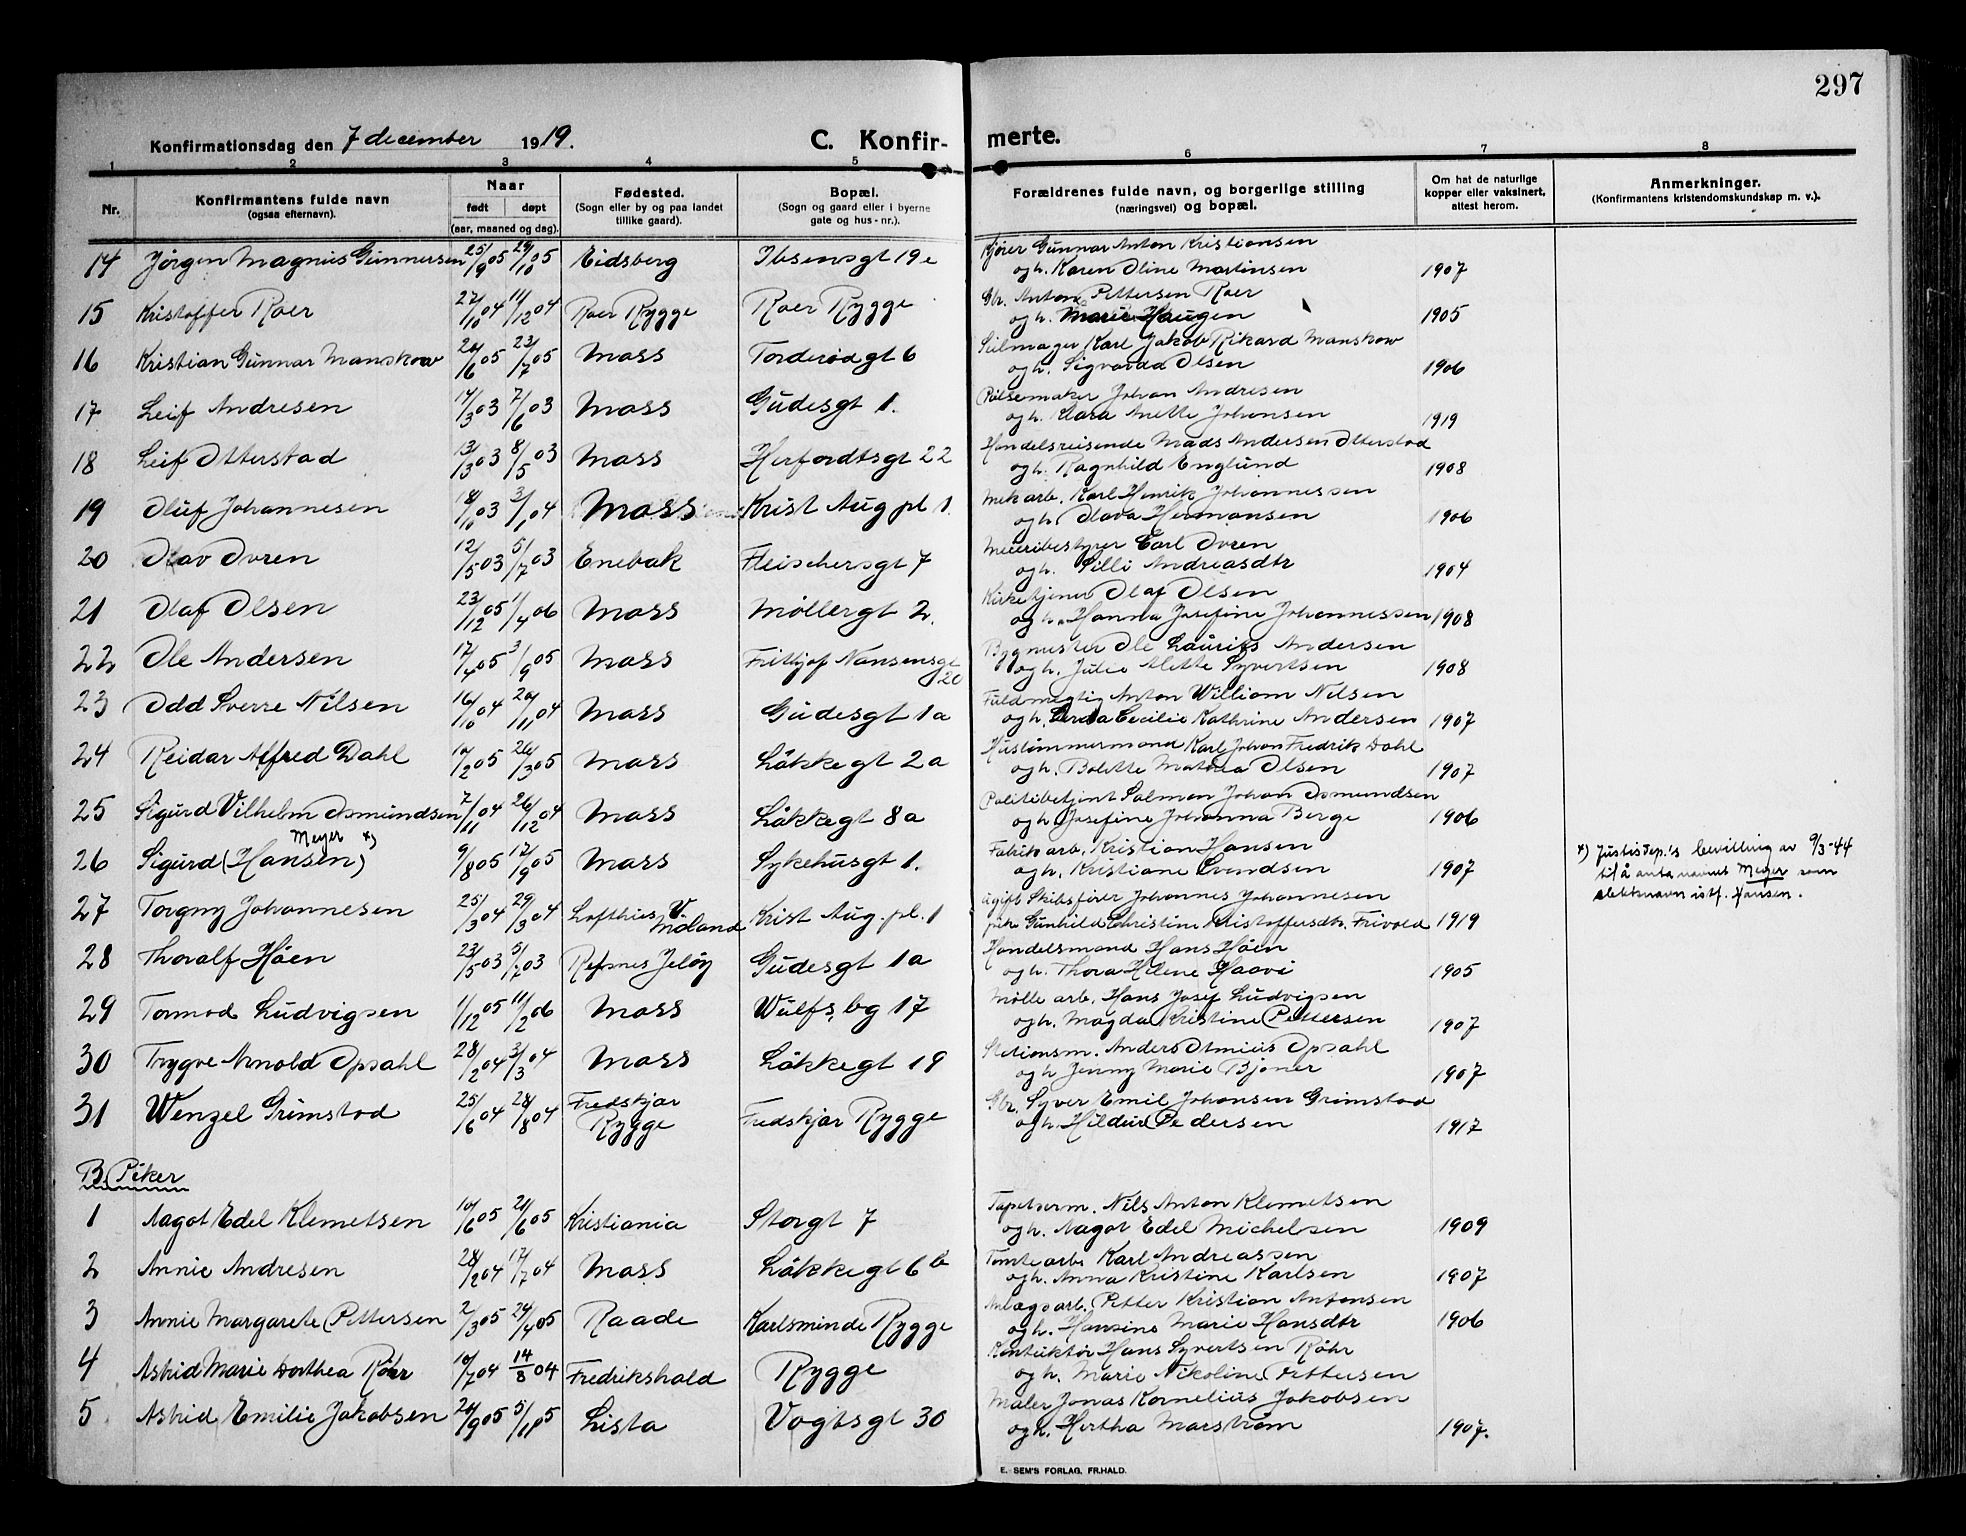 297
Konfirmationsdag den 7 december 1919. C. Konfir- merte.
1 2 3 4 5 6 7 8
Nr. Konfirmantens fulde navn (ogsaa efternavn). Naar født døpt (aar, maaned og dag). Fødested. (Sogn eller by og paa landet tillike gaard). Bopæl. (Sogn og gaard eller i byerne gate og hus-nr.). Forældrenes fulde navn, og borgerlige stilling (næringsvei) og bopæl. Om hat de naturlige kopper eller vaksinert, attest herom. Anmerkninger. (Konfirmantens kristendomskundskap m. v.).
14 Jörgen Magnus Gunnersen 25/9 05 29/10 05 Eidsberg Ibsensgt 19c Kjører Gunnar Anton Kristiansen
og h. Karen Oline Martinsen 1907
15 Kristoffer Roer 27/10 04 11/12 04 Roer Rygge Roer Rygge Gbr. Anton Pettersen Roer
og h. Marie Haugen 1905
16 Kristian Gunnar Manskow 26/6 05 23/7 05 Moss Torderødgt 6 Seilmager Karl Jakob Rikard Manskow
og h. Sigvarda Olsen 1906
17 Leif Andresen 17/3 03 7/6 03 Moss Gudesgt 1. Pølsemaker Johan Andresen
og h. Klara Anette Johansen 1919
18 Leif Otterstad 13/3 03 8/5 03 Moss Herfordtsgt 22 Handelsreisende Mads Andersen Otterstad
og h. Ragnhild Englund 1908
19 Oluf Johannesen 18/10 03 3/1 04 Moss Krist Aug pl 1. Mek arb. Karl Henrik Johannessen
og h. Olava Hermansen 1906
20 Olav Ovren 12/5 03 5/7 03 Enebak Fleischersgt 7 Meieribestyrer Carl Ovren
og h. Pilli Andreasdtr 1904
21 Olaf Olsen 23/12 05 1/4 06 Moss Møllergt 2. Kirketjener Olaf Olsen
og h. Hanna Josefine Johannessen 1908
22 Ole Andersen 17/4 05 3/9 05 Moss Frithjof Nansensgt 20 Bygmester Ole Laurits Andersen
og h. Julie Alette Syvertsen 1908
23 Odd Sverre Nilsen 16/10 04 20/11 04 Moss Gudesgt 1a Fuldmegtig Anton William Nilsen
og h. Gerda Cecilie Kathrine Andersen 1907
24 Reidar Alfred Dahl 10/2 05 26/3 05 Moss Løkkegt 2a Hustømmermand Karl Johan Fredrik Dahl
og h. Bolette Mathea Olsen 1907
25 Sigurd Vilhelm Osmundsen 7/11 04 26/12 04 Moss Løkkegt 8a Politibetjent Salmon Johan Osmundsen
og h. Josefine Johanna Berge 1906
Meyer x)
26 Sigurd (Hansen) 9/8 05 17/9 05 Moss Sykehusgt 1. Fabrik arb. Kristian Hansen
og h. Kristiane Svendsen 1907
x) Justisdep.'s bevilling av 9/3-44
til å anta navnet Meyer som
slektnavn istf. Hansen.
27 Torgny Johannesen 25/3 04 29/3 04 Lofthus V. Moland Krist Aug. pl. 1 ugift Skibsfører Johannes Johannesen
pike Gunhild Christine Kristoffersdtr. Frivold 1919
28 Thoralf Høen 23/5 03 5/7 03 Refsnes Jeløy Gudesgt 1a Handelsmand Hans Høen
og h. Thora Helene Haavi 1905
29 Tormod Ludvigsen 1/12 05 11/2 06 Moss Wulfs. bg 17 Mølle arb. Hans Josef Ludvigsen
og h. Magda Kristine Pettersen 1907
30 Trygve Arnold Opsahl 28/2 04 3/3 04 Moss Løkkegt 19 Stationsm. Anders Otmius Opsahl
og h. Jenny Marie Bjøner 1907
31 Wenzel Grimstad 25/6 04 28/8 04 Fredskjær Rygge Fredskjær Rygge Gbr. Syver Emil Johansen Grimstad
og h. Hildur Pedersen 1917
B. Piker
1 Aagot Edel Klemetsen 10/6 05 21/6 05 Kristiania Storgt 7 Tapetserm. Nils Anton Klemetsen
og h. Aagot Edel Michelsen 1909
2 Annie Andresen 28/2 04 17/7 04 Moss Løkkegt 6b Tomtearb. Karl Andreassen
og h. Anna Kristine Karlsen 1907
3 Annie Margarete Pettersen 2/3 05 24/4 05 Raade Karlsminde Rygge Anlægsarb. Petter Kristian Antonsen
og h. Hansine Marie Hansdtr 1906
4 Astrid Marie Dorthea Röhr 10/7 04 14/8 04 Fredrikshald Rygge Konduktør Hans Syvertsen Röhr
og h. Marie Nikoline Pettersen
5 Astrid Emilie Jakobsen 24/9 05 5/11 5 Lista Vogtsgt 30 Maler Jonas Kornelius Jakobsen
og h. Hertha Marstrøm 1907.
E. SEM'S FORLAG, FR.HALD.